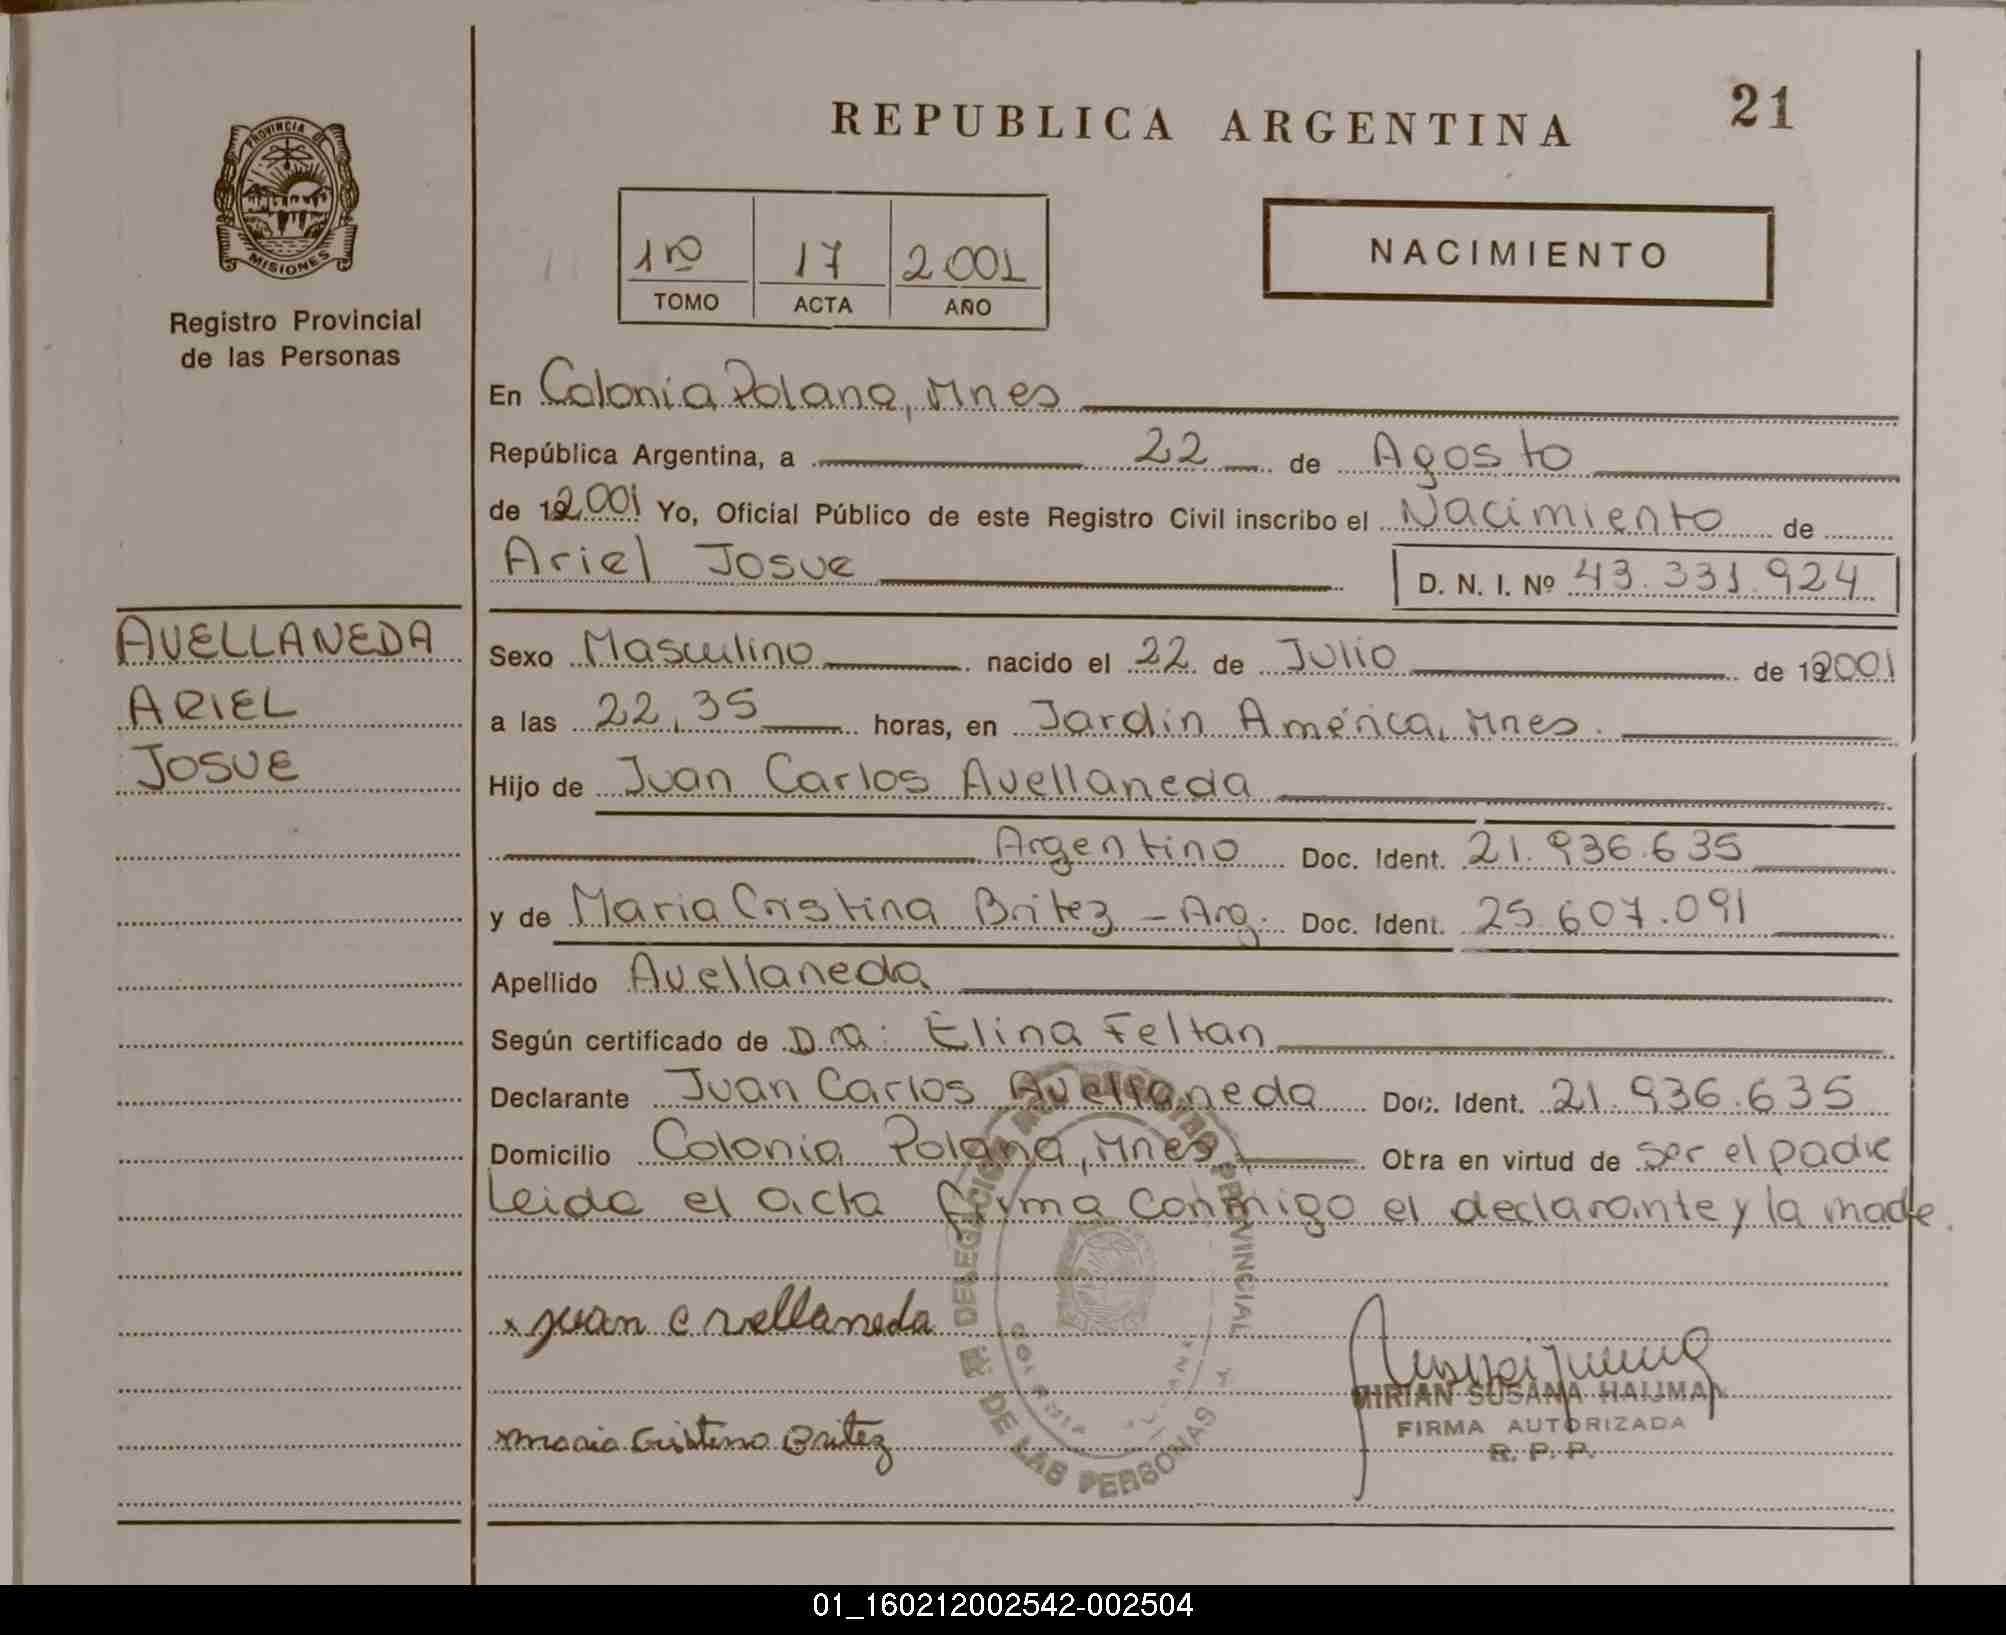 REPUBLICA ARGENTINA 21
PROVINCIA DE
MISIONES
Registro Provincial
de las Personas
1º 17 2.001
TOMO ACTA AÑO
NACIMIENTO
En Colonia Polana, Mnes
República Argentina, a 22 de Agosto
de 2001 Yo, Oficial Público de este Registro Civil inscribo el Nacimiento de
Ariel Josue D. N. I. Nº 43.331.924
AVELLANEDA
ARIEL
JOSUE
Sexo Masculino nacido el 22 de Julio de 2001
a las 22,35 horas, en Jardín América, Mnes.
Hijo de Juan Carlos Avellaneda
Argentino Doc. Ident. 21.936.635
y de Maria Cristina Britez - Arg. Doc. Ident. 25.607.091
Apellido Avellaneda
Según certificado de Dra: Elina Feltan
Declarante Juan Carlos Avellaneda Doc. Ident. 21.936.635
Domicilio Colonia Polana, Mnes Obra en virtud de ser el padre
Leida el acta firma conmigo el declarante y la madre.
x juan c avellaneda
x maria Cristina Britez
DELEGACION PROVINCIAL
DE LAS PERSONAS
MIRIAN SUSANA HAIJMAN
FIRMA AUTORIZADA
R. P. P.
01_160212002542-002504